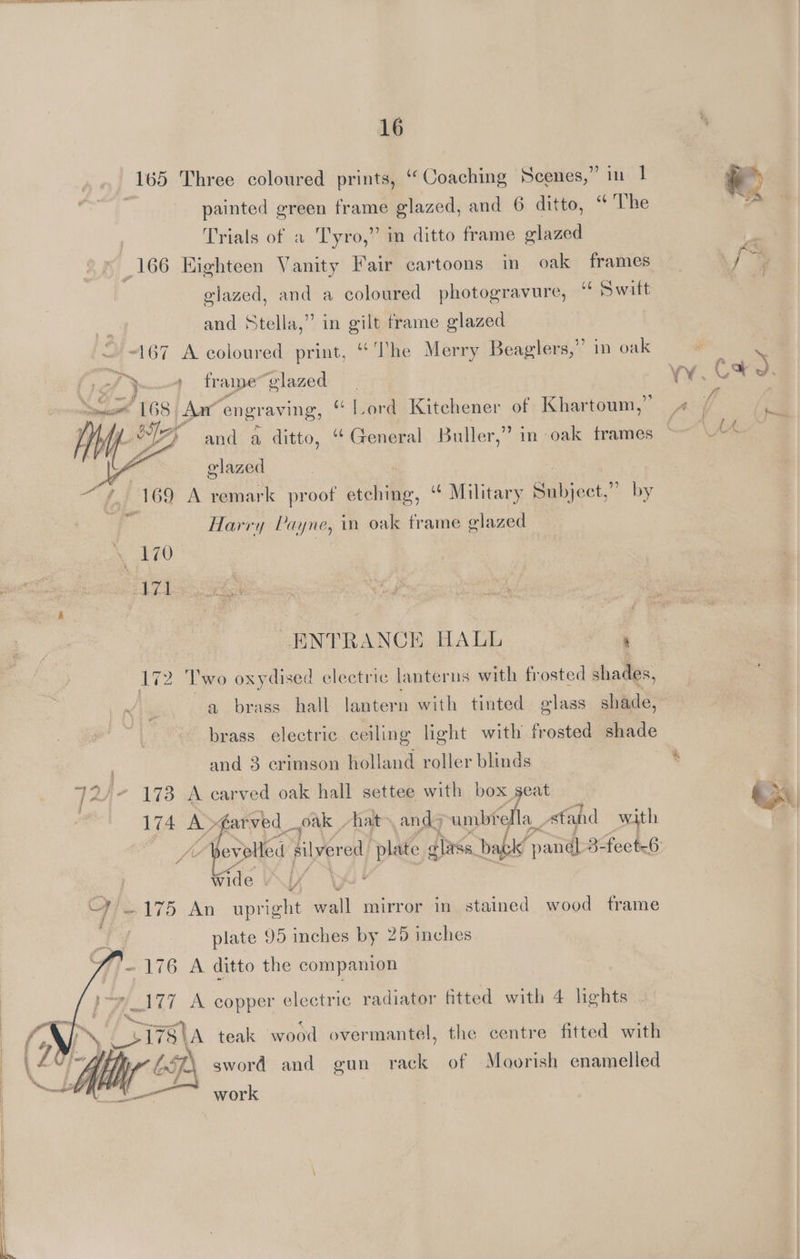 16
165 Three coloured prints, “Coaching Scenes,” in 1
painted green frame glazed, and 6 ditto, “The
Trials of a Tyro,” in ditto frame glazed
166 Eighteen Vanity Fair cartoons in oak frames
glazed, and a coloured photogravure, “Swift
and Stella,” in gilt frame glazed
167 A coloured print, “The Merry Beaglers,” in oak
frame glazed
168 An engraving, “Lord Kitchener of Khartoum,”
and a ditto, “General Buller,” in oak frames
glazed
169 A remark proof etching, “Military Subject,” by
Harry Payne, in oak frame glazed
170
171
ENTRANCE HALL
172 Two oxydised electric lanterns with frosted shades,
a brass hall lantern with tinted glass shade,
brass electric ceiling light with frosted shade
and 3 crimson holland roller blinds
72/- 173 A carved oak hall settee with box seat
174 A carved oak hat and umbrella stand with
bevelled silvered plate glass back panel 3-feet-6
wide
175 An upright wall mirror in stained wood frame
plate 95 inches by 25 inches
176 A ditto the companion
177 A copper electric radiator fitted with 4 lights
178 A teak wood overmantel, the centre fitted with
sword and gun rack of Moorish enamelled
work